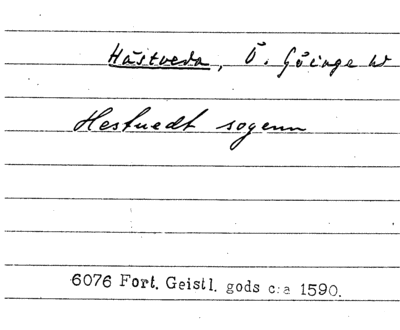 Hästveda, Ö. Göinge hd
Hestuedt sogenn
6076 Fort. Geistl. gods c:a 1590.